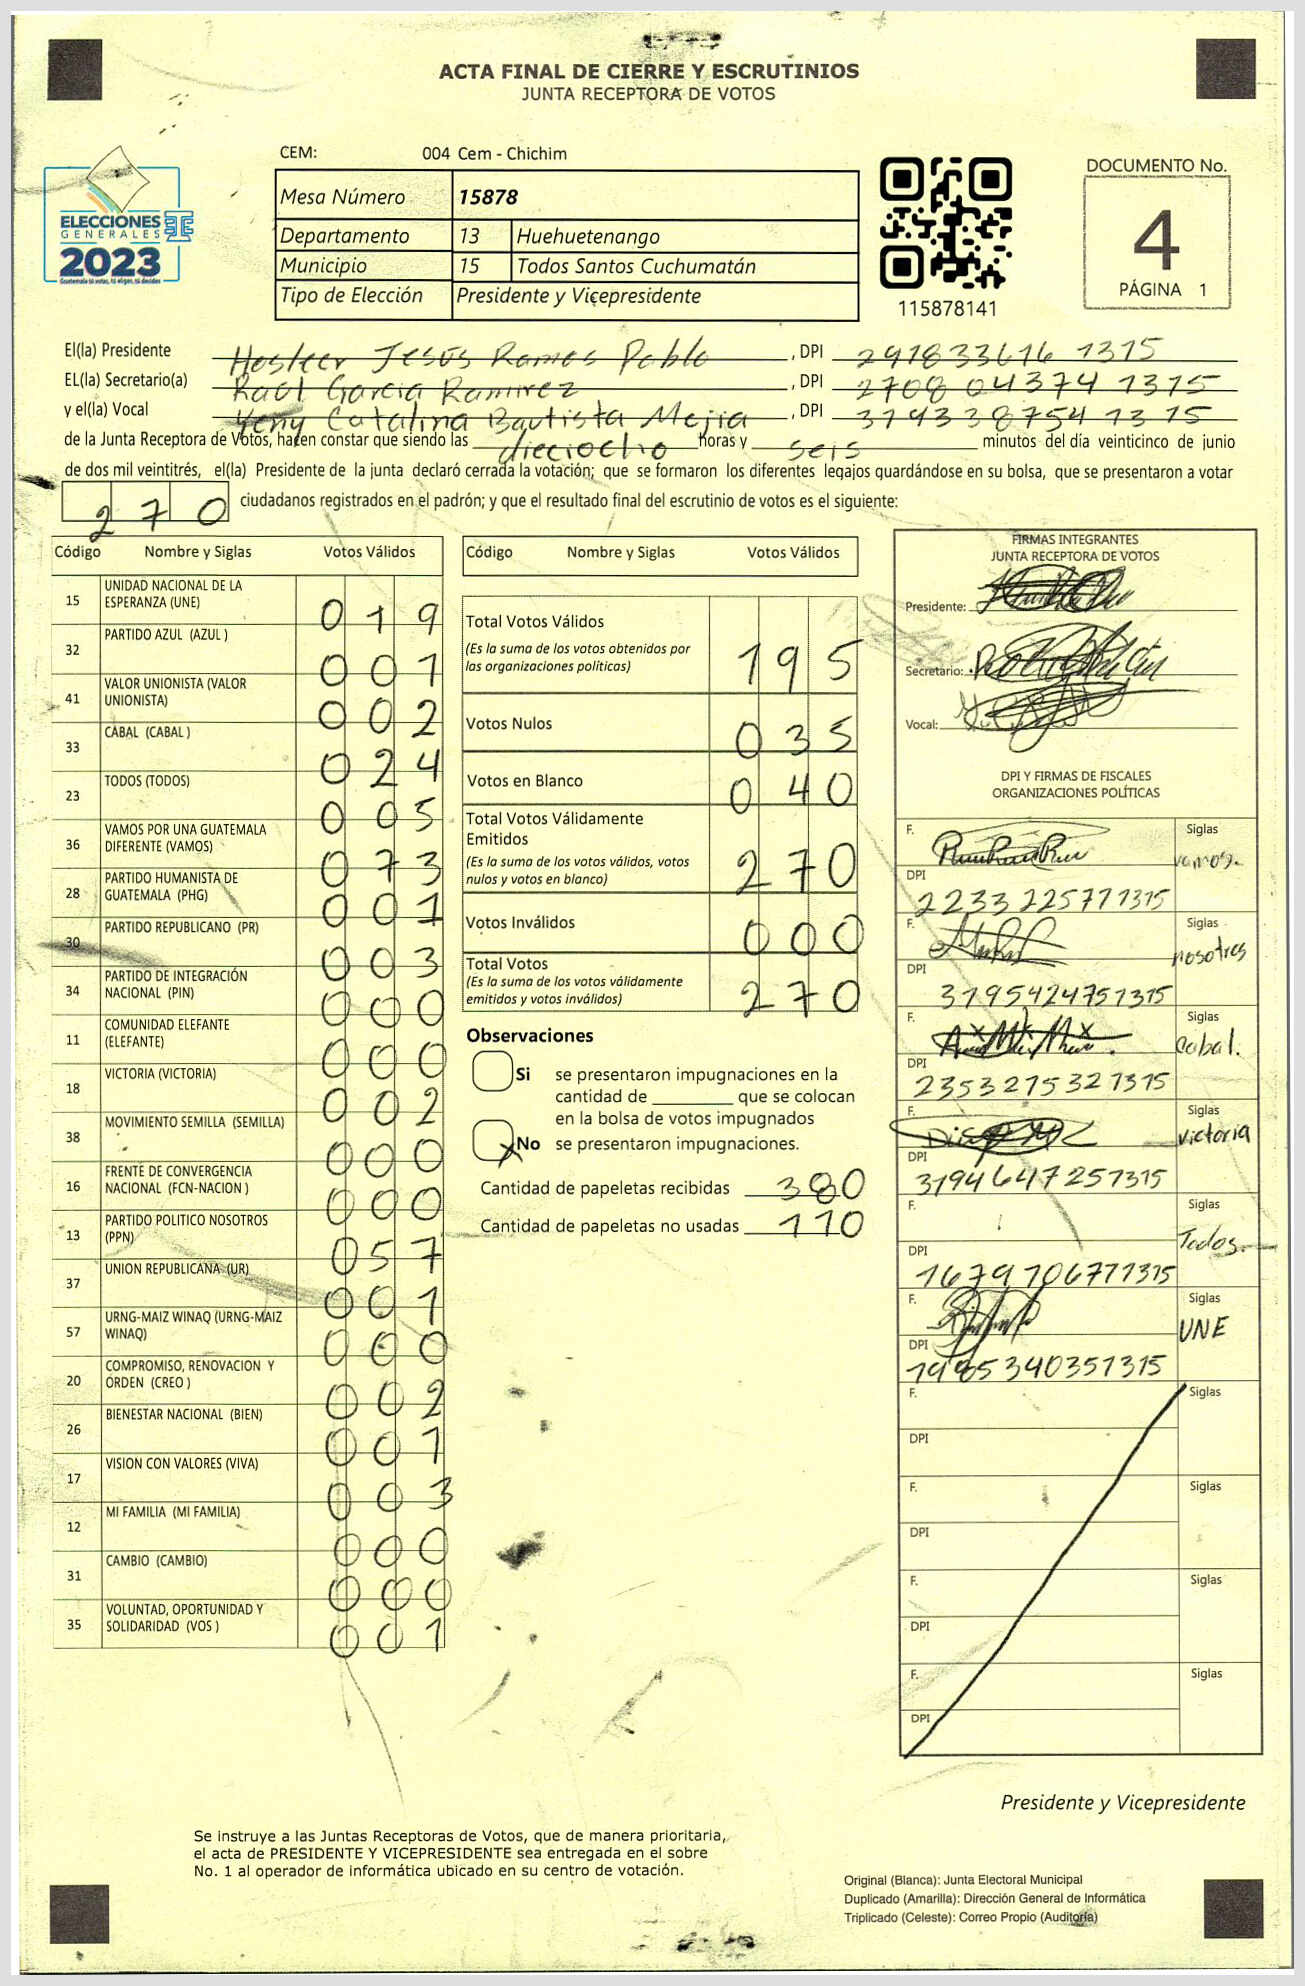 ACTA FINAL DE CIERRE Y ESCRUTINIOS
JUNTA RECEPTORA DE VOTOS
CEM: 004 Cem - Chichim
ELECCIONES
GENERALES
2023
Guatemala tú votas, tú eliges, tú decides
Mesa Número 15878
Departamento 13 Huehuetenango
Municipio 15 Todos Santos Cuchumatán
Tipo de Elección Presidente y Vicepresidente
115878141
DOCUMENTO No.
4
PÁGINA 1
El(la) Presidente Hosleer Jesús Ramos Pablo , DPI 291833616 1315
EL(la) Secretario(a) Raúl Garcia Ramirez , DPI 2708 04374 1315
y el(la) Vocal Yeny Catalina Bautista Mejia , DPI 319338754 1315
de la Junta Receptora de Votos, hacen constar que siendo las dieciocho horas y seis minutos del día veinticinco de junio
de dos mil veintitrés, el(la) Presidente de la junta declaró cerrada la votación; que se formaron los diferentes legajos guardándose en su bolsa, que se presentaron a votar
270 ciudadanos registrados en el padrón; y que el resultado final del escrutinio de votos es el siguiente:
Código Nombre y Siglas Votos Válidos
15 UNIDAD NACIONAL DE LA ESPERANZA (UNE) 019
32 PARTIDO AZUL (AZUL ) 001
41 VALOR UNIONISTA (VALOR UNIONISTA) 002
33 CABAL (CABAL ) 024
23 TODOS (TODOS) 005
36 VAMOS POR UNA GUATEMALA DIFERENTE (VAMOS) 073
28 PARTIDO HUMANISTA DE GUATEMALA (PHG) 001
30 PARTIDO REPUBLICANO (PR) 003
34 PARTIDO DE INTEGRACIÓN NACIONAL (PIN) 000
11 COMUNIDAD ELEFANTE (ELEFANTE) 000
18 VICTORIA (VICTORIA) 002
38 MOVIMIENTO SEMILLA (SEMILLA) 000
16 FRENTE DE CONVERGENCIA NACIONAL (FCN-NACION ) 000
13 PARTIDO POLITICO NOSOTROS (PPN) 057
37 UNION REPUBLICANA (UR) 001
57 URNG-MAIZ WINAQ (URNG-MAIZ WINAQ) 000
20 COMPROMISO, RENOVACION Y ORDEN (CREO ) 002
26 BIENESTAR NACIONAL (BIEN) 001
17 VISION CON VALORES (VIVA) 003
12 MI FAMILIA (MI FAMILIA) 000
31 CAMBIO (CAMBIO) 000
35 VOLUNTAD, OPORTUNIDAD Y SOLIDARIDAD (VOS ) 001
Código Nombre y Siglas Votos Válidos
Total Votos Válidos 195
(Es la suma de los votos obtenidos por
las organizaciones políticas)
Votos Nulos 035
Votos en Blanco 040
Total Votos Válidamente
Emitidos 270
(Es la suma de los votos válidos, votos
nulos y votos en blanco)
Votos Inválidos 000
Total Votos 270
(Es la suma de los votos válidamente
emitidos y votos inválidos)
Observaciones
Si se presentaron impugnaciones en la
cantidad de ________ que se colocan
en la bolsa de votos impugnados
X No se presentaron impugnaciones.
Cantidad de papeletas recibidas 380
Cantidad de papeletas no usadas 110
FIRMAS INTEGRANTES
JUNTA RECEPTORA DE VOTOS
Presidente:
Secretario:
Vocal:
DPI Y FIRMAS DE FISCALES
ORGANIZACIONES POLÍTICAS
F. Siglas vamos.
DPI 2233 225771315
F. Siglas nosotres
DPI 3195424751315
F. Siglas Cabal.
DPI 2353275327315
F. Siglas victoria
DPI 3194647251315
F. Siglas Todos.
DPI 1679706771315
F. Siglas UNE
DPI 1985340351315
F. Siglas
DPI
F. Siglas
DPI
F. Siglas
DPI
F. Siglas
DPI
Presidente y Vicepresidente
Se instruye a las Juntas Receptoras de Votos, que de manera prioritaria,
el acta de PRESIDENTE Y VICEPRESIDENTE sea entregada en el sobre
No. 1 al operador de informática ubicado en su centro de votación.
Original (Blanca): Junta Electoral Municipal
Duplicado (Amarilla): Dirección General de Informática
Triplicado (Celeste): Correo Propio (Auditoría)